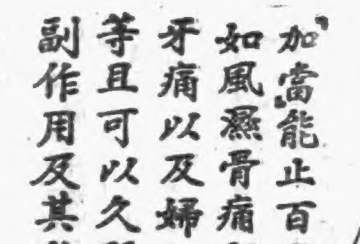 「加當」能止百
如風濕骨痛
牙痛以及婦
等且可以久
副作用及其